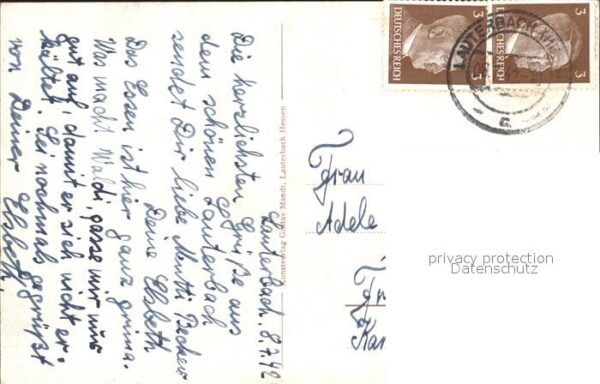 Lauterbach, 8.7.42
Die herzlichsten Grüße aus
dem schönen Lauterbach
sendet Dir liebe Mutti Becker
Deine Elsbeth
Das Essen ist hier ganz prima.
Was macht Waldi, passe mir nur
gut auf, damit er sich nicht er-
kältet. Sei nochmals gegrüßt
von Deiner Elsbeth.
Kunstverlag Gustav Mandt, Lauterbach Hessen
DEUTSCHES REICH
3 3
DEUTSCHES REICH
3 3
LAUTERBACH
Frau
Adele
Kas
privacy protection
Datenschutz